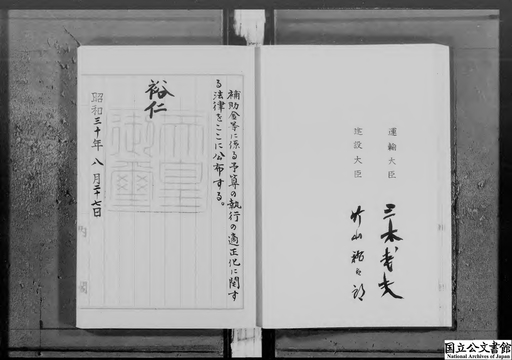 補助金等に係る予算の執行の適正化に関す
る法律をここに公布する。
裕仁
天皇
御璽
昭和三十年八月二十七日
運輸大臣 三木武夫
建設大臣 竹山祐太郎
国立公文書館
National Archives of Japan